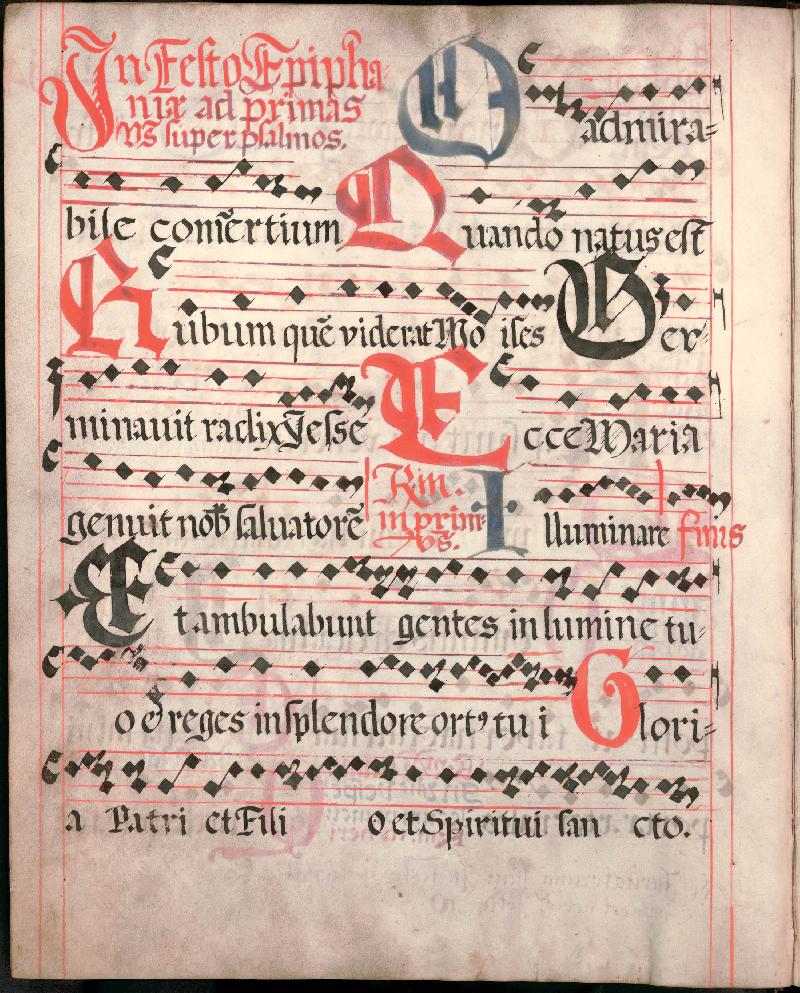 In Festo Epipha
niæ ad primas
V̄s̄ super psalmos.
O admira=
bile com̄ertium Quando natus est
Rubum quē viderat Moises Ger=
minauit radix Jesse Ecce Maria
genuit nob̄ saluatorē
Rin.
in prim=
Vs̄.
Illuminare finis
Et ambulabunt gentes in lumine tu=
o et reges in splendore ortꝰ tui Glori=
a Patri et Filio et Spiritui sancto.